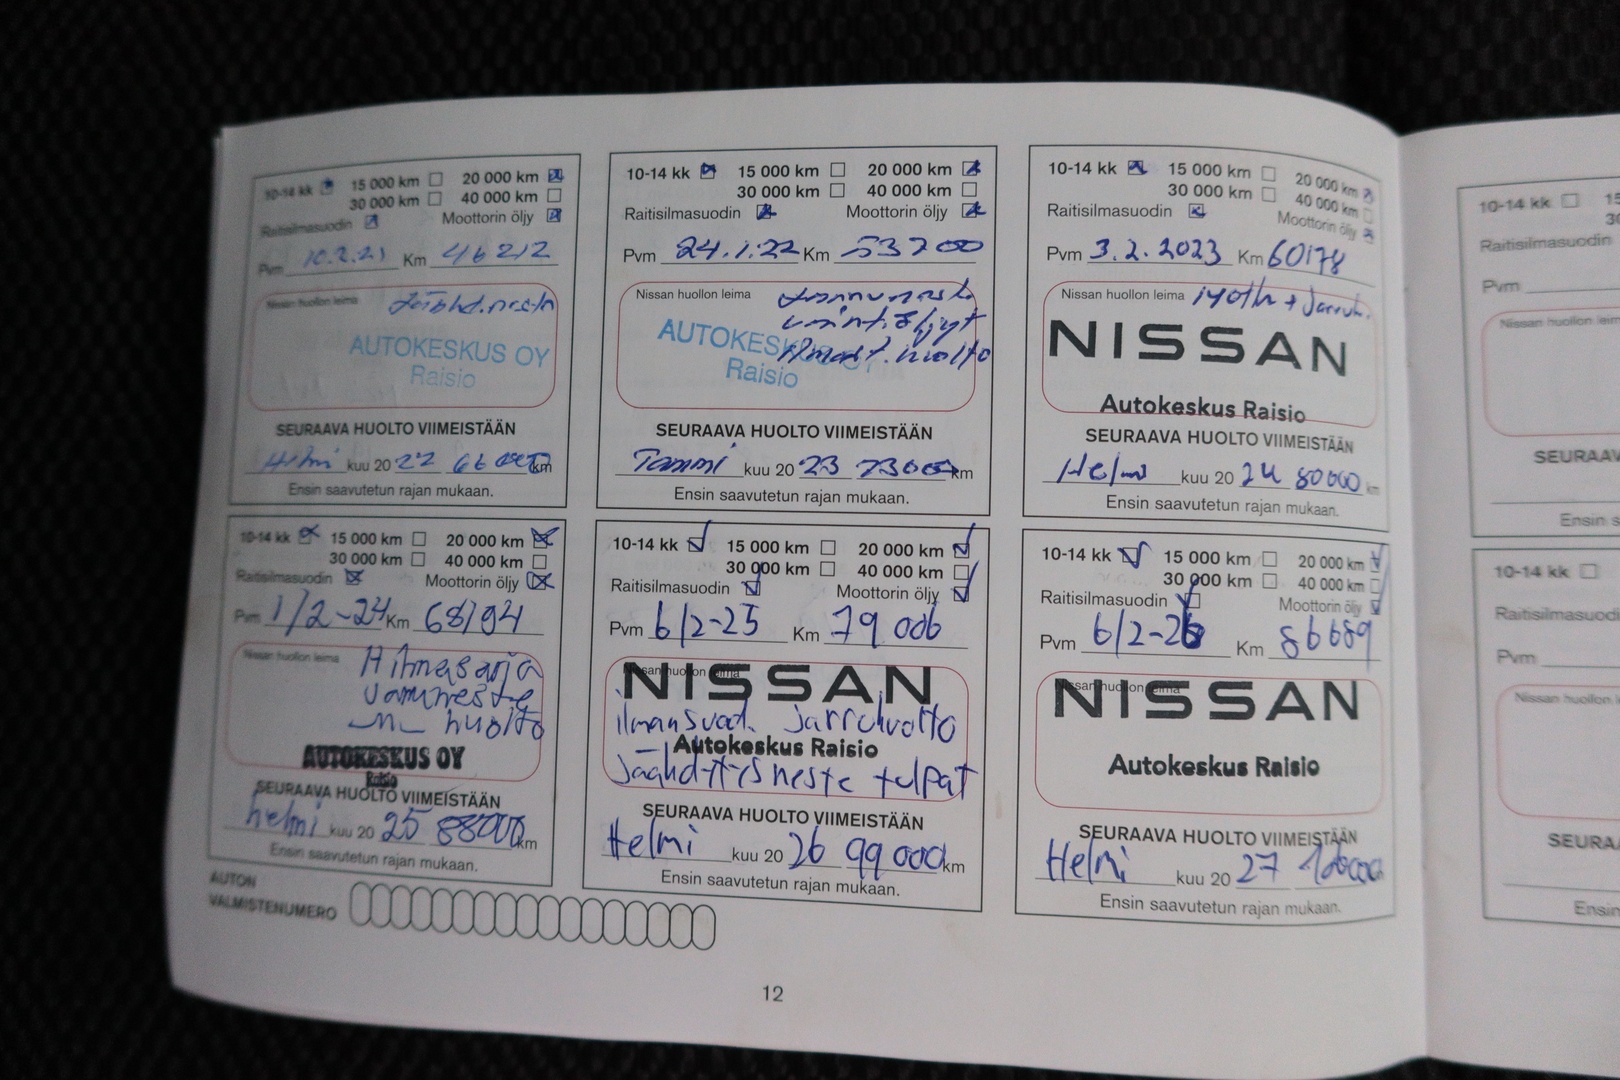 10-14 kk 15 000 km 20 000 km
30 000 km 40 000 km
Raitisilmasuodin Moottorin öljy
Pvm 10.2.21 Km 46212
Nissan huollon leima
AUTOKESKUS OY
Raisio
SEURAAVA HUOLTO VIIMEISTÄÄN
Helmi kuu 20 22 66 000 km
Ensin saavutetun rajan mukaan.
10-14 kk 15 000 km 20 000 km
30 000 km 40 000 km
Raitisilmasuodin Moottorin öljy
Pvm 24.1.22 Km 53200
Nissan huollon leima
AUTOKESKUS OY
Raisio
SEURAAVA HUOLTO VIIMEISTÄÄN
Tammi kuu 20 23 73000 km
Ensin saavutetun rajan mukaan.
10-14 kk 15 000 km 20 000 km
30 000 km 40 000 km
Raitisilmasuodin Moottorin öljy
Pvm 3.2.2023 Km 60178
Nissan huollon leima + Jarruh.
NISSAN
Autokeskus Raisio
SEURAAVA HUOLTO VIIMEISTÄÄN
Helmi kuu 20 24 80000 km
Ensin saavutetun rajan mukaan.
10-14 kk 15 000 km 20 000 km
30 000 km 40 000 km
Raitisilmasuodin Moottorin öljy
Pvm 1/2-24 Km 68194
Nissan huollon leima
huolto
AUTOKESKUS OY
Raisio
SEURAAVA HUOLTO VIIMEISTÄÄN
helmi kuu 20 25 88000 km
Ensin saavutetun rajan mukaan.
10-14 kk 15 000 km 20 000 km
30 000 km 40 000 km
Raitisilmasuodin Moottorin öljy
Pvm 6/2-25 Km 79 006
Nissan huollon leima
NISSAN
ilmansuod. jarruhuolto
Autokeskus Raisio
Jäähdytysneste tulpat
SEURAAVA HUOLTO VIIMEISTÄÄN
Helmi kuu 20 26 99 000 km
Ensin saavutetun rajan mukaan.
10-14 kk 15 000 km 20 000 km
30 000 km 40 000 km
Raitisilmasuodin Moottorin öljy
Pvm 6/2-26 Km 86689
Nissan huollon leima
NISSAN
Autokeskus Raisio
SEURAAVA HUOLTO VIIMEISTÄÄN
Helmi kuu 20 27
Ensin saavutetun rajan mukaan.
AUTON
VALMISTENUMERO
12
10-14 kk
Raitisilmasuodin
Pvm
Nissan huollon
Ensin
10-14 kk
Raitisilmasuodin
Pvm
Nissan huollon
Ensin